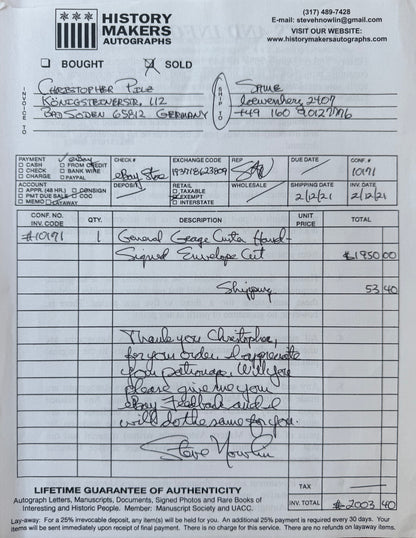 HISTORY
MAKERS
AUTOGRAPHS
(317) 489-7428
E-mail: stevehnowlin@gmail.com
VISIT OUR WEBSITE:
www.historymakersautographs.com
BOUGHT
SOLD
INVOICE TO
Christopher Pile
Königsteinerstr. 112
Bad Soden 65812 Germany
SHIP TO
Same
loewenherz2407
+49 160 90127776
PAYMENT eBay
CASH FROM CREDIT
CHECK BANK WIRE
CHARGE PAYPAL
CHECK #
eBay Store
EXCHANGE CODE
193718623809
REP
DUE DATE
CONF. #
10191
ACCOUNT
APPR. (48 HR.) CONSIGN
PMT DUE SALE COC
MEMO LAYAWAY
DEPOSIT
RETAIL
TAXABLE
EXEMPT
INTERSTATE
WHOLESALE
SHIPPING DATE
2/12/21
INV. DATE
2/12/21
CONF. NO.
INV. CODE
QTY.
DESCRIPTION
UNIT
PRICE
TOTAL
#10191 1 General George Custer Hand-
Signed Envelope Cut $1950.00
Shipping 53.40
Thank you Christopher,
for your order. I appreciate
your patronage. Will you
please give me your
eBay Feedback and I
will do the same for you.
Steve Nowlin
LIFETIME GUARANTEE OF AUTHENTICITY
Autograph Letters, Manuscripts, Documents, Signed Photos and Rare Books of
Interesting and Historic People. Member: Manuscript Society and UACC.
TAX —
INV. TOTAL $2003.40
Lay-away: For a 25% irrevocable deposit, any item(s) will be held for you. An additional 25% payment is required every 30 days. Your
items will be sent immediately upon receipt of final payment. There is no charge for this service. There are no refunds on layaway items.